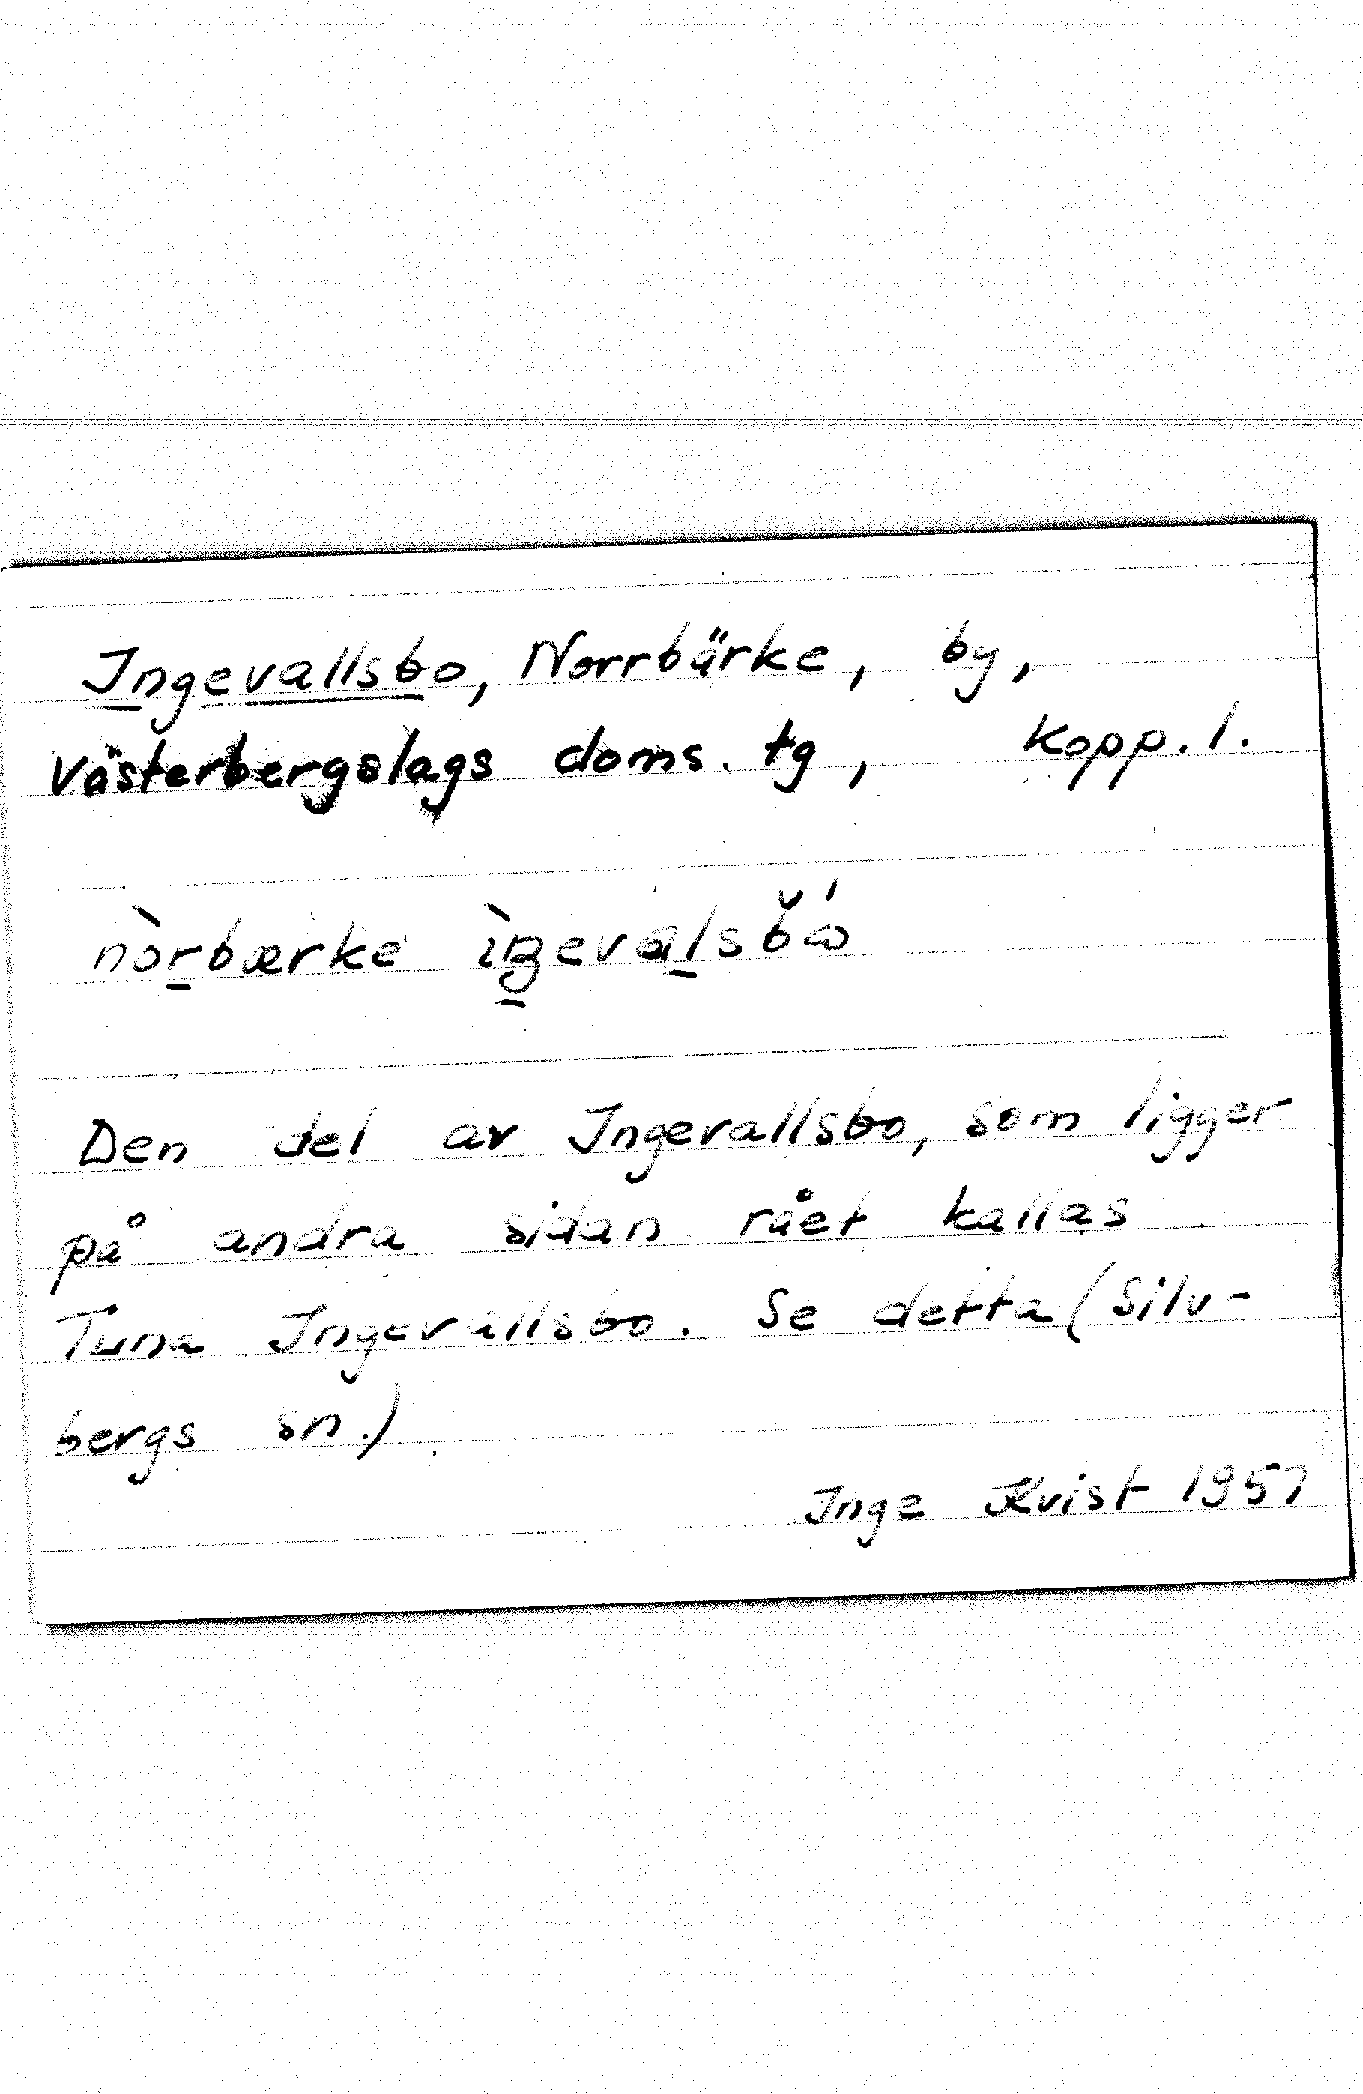 Ingevallsbo, Norrbärke, by,
Västerbergslags doms. tg, Kopp. l.
nòrbærke ìŋevalsbω̆́
Den del av Ingevallsbo, som ligger
på andra sidan rået kallas
Tuna Ingevallsbo. Se detta (Silv-
bergs sn.)
Inge Kvist 1951